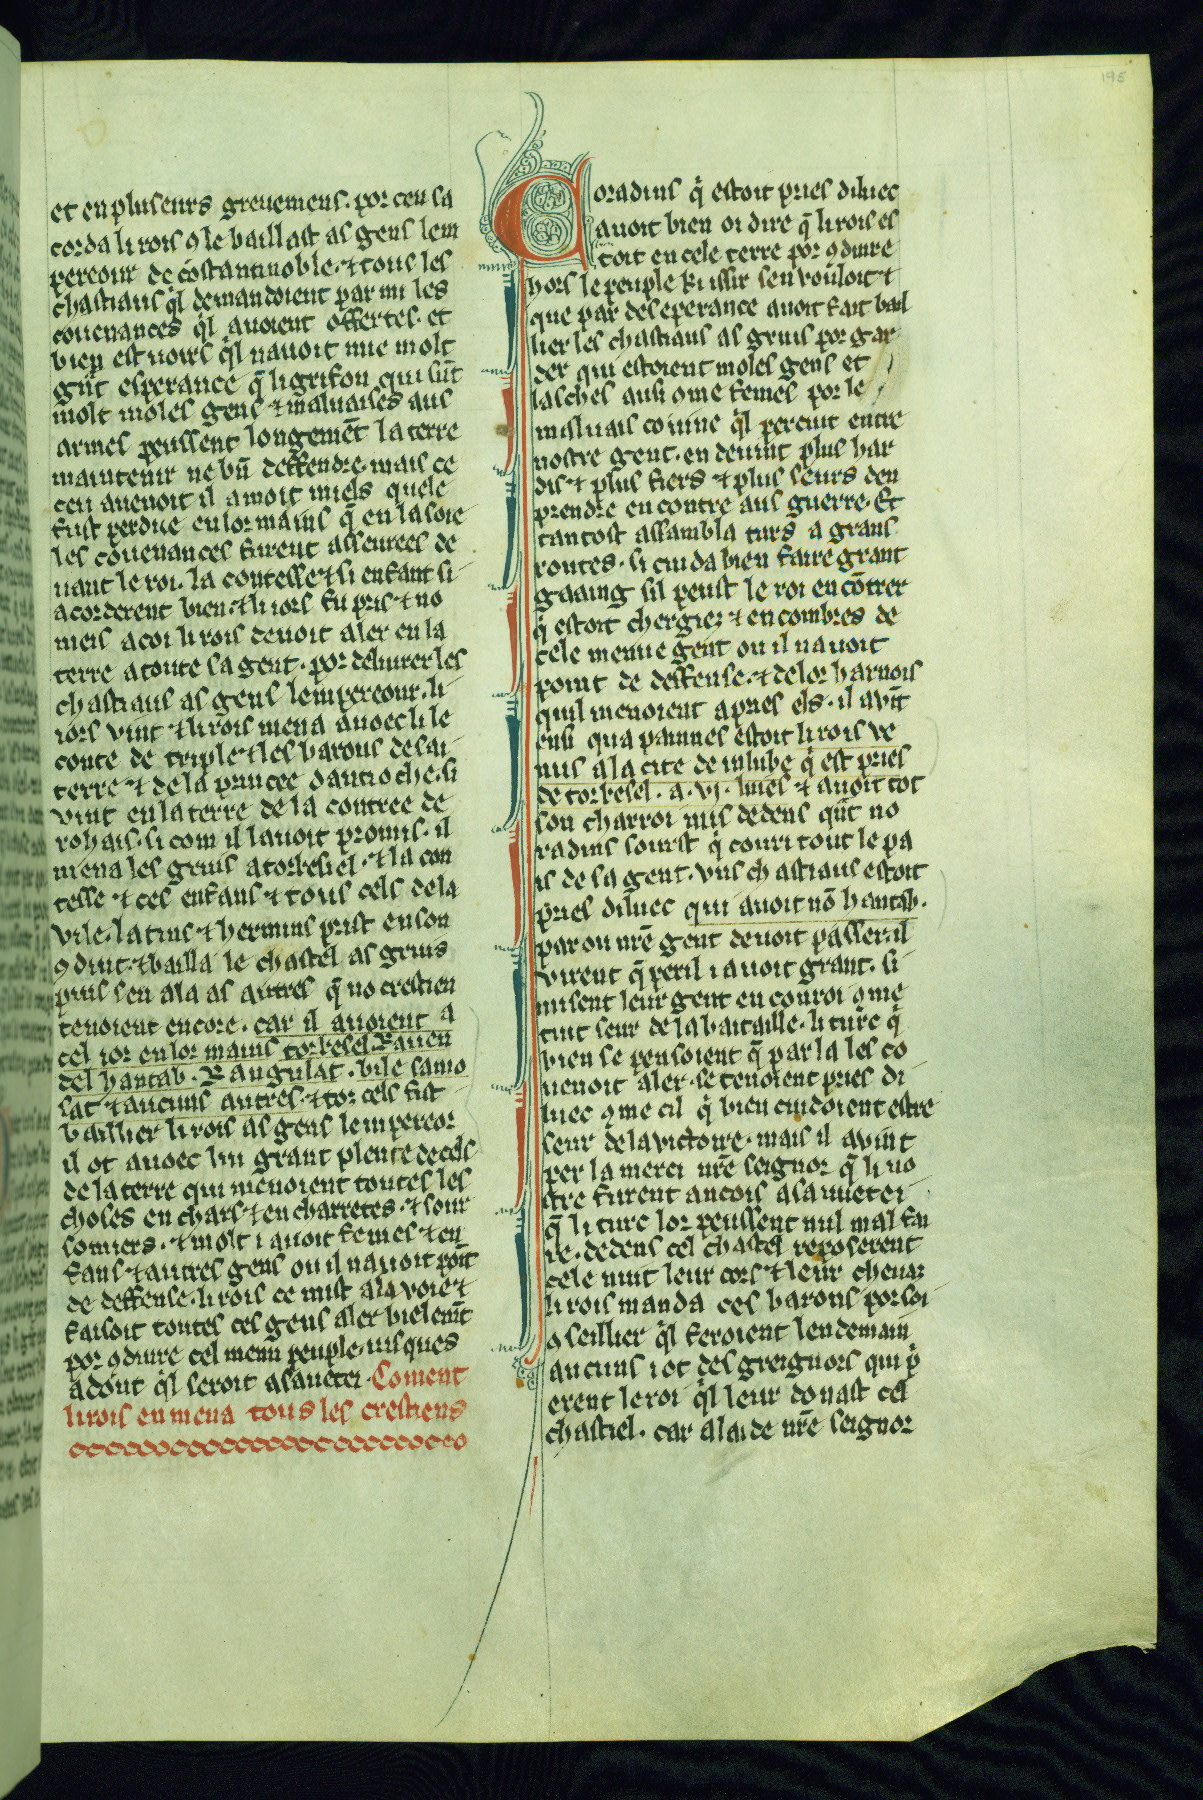 195
et en pluseurs greuemens. por ceu sa
corda li rois ꝯ le baillast as gens lem
pereour de cōstantinoble. ⁊ tous les
chastiaus q̄l demandoient par mi les
couenances q̄l auoient offertes. et
bien est uoirs q̄l nauoit mie molt
gn̄t esperance q̄ li grifon qui sūt
molt moles gens ⁊ maluaises aus
armes peussent longemēt la terre
maintenir ne bn̄ deffendre. mais ce
ceu auenoit il amoit miels quele
fust perdue en lor mains q̄ en la soie
les couenances furent asseurees de
uant le roi. la contesse ⁊ si enfant si
acorderent bien. ⁊ li iors fu pris ⁊ no
meis a coi li rois deuoit aler en la
terre a toute sa gent. por deliurer les
chastiaus as gens lempereour. li
iors vint ⁊ li rois mena auoec li le
conte de triple ⁊ les barons de sai
terre ⁊ de la princee dantioche. si
vint en la terre de la contree de
rohais. si com il lauoit promis. il
mena les grius a torbesiel. ⁊ la con
tesse ⁊ ces enfans ⁊ tous cels de la
vile. latins ⁊ hermins prist en son
ꝯduit. ⁊ bailla le chastel as grius
puis sen ala as autres q̄ no crestien
tenoient encore. car il auoient a
cel ior en lor mains torbesel. Rauen
del hantab. Rangulat. bile samo
sat ⁊ aucuns autres. ⁊ toz cels fist
baillier li rois as gens lempereor
il ot auoec lui grant plente de cels
de la terre qui menoient toutes les
choses en chars ⁊ en charretes. ⁊ sour
somiers. ⁊ molt i auoit femes ⁊ en
fans ⁊ autres gens ou il nauoit poīt
de deffense. li rois ce mist a la voie ⁊
faisoit toutes ces gens aler bielemt̄
por ꝯduire cel menu peuple. iusques
adont q̄l seroit a sauetei. Coment
li rois en mena tous les crestiens
Coradins q̄ estoit pries diluec
auoit bien oi dire q̄ li rois es
toit en cele terre por ꝯduire
hors le peuple ki issir sen vouloit ⁊
que par desesperance auoit fait bail
lier les chastiaus as grius por gar
der qui estoient moles gens et
lasches ausi ꝯme femes por le
maluais couine q̄l percuit entre
nostre gent. en deuint plus har
dis ⁊ plus fiers ⁊ plus seurs den
prendre encontre aus guerre. Et
tantost assambla turs a grans
routes. si cuida bien faire grant
gaaing sil peust le roi encōtrer
q̄ estoit chergiez ⁊ encombres de
cele menue gent ou il nauoit
point de deffense. ⁊ de lor harnois
quil menoient apries els. il auīt
ensi qua painnes estoit li rois ve
nus a la cite de tulupe q̄ est pries
de torbesel. a .vi. liues ⁊ auoit tot
son charroi mis dedens qn̄t no
radins sourst q̄ couri tout le pa
is de sa gent. vns chastiaus estoit
pries diluec qui auoit nō hantab.
par ou nr̄e gent deuoit passer. il
virent q̄ peril i auoit grant. si
misent leur gent en couroi ꝯme
tuit seur de la bataille. li turc q̄
bien se pensoient q̄ par la les co
uenoit aler. se tenoient pries di
luec ꝯme cil q̄ bien cuidoient estre
seur de la victoire. mais il auint
per la merci nr̄e seignor q̄ li no
stre furent ancois a sauuetei
q̄ li turc lor peussent nul mal fai
re. dedens cel chastel reposerent
cele nuit leur cors ⁊ leur cheuax
li rois manda ces barons por soi
ꝯseillier q̄l feroient lendemain
aucuns i ot des greignors qui p̄
erent le roi q̄l leur donast cel
chastiel. car a laide nr̄e seignor